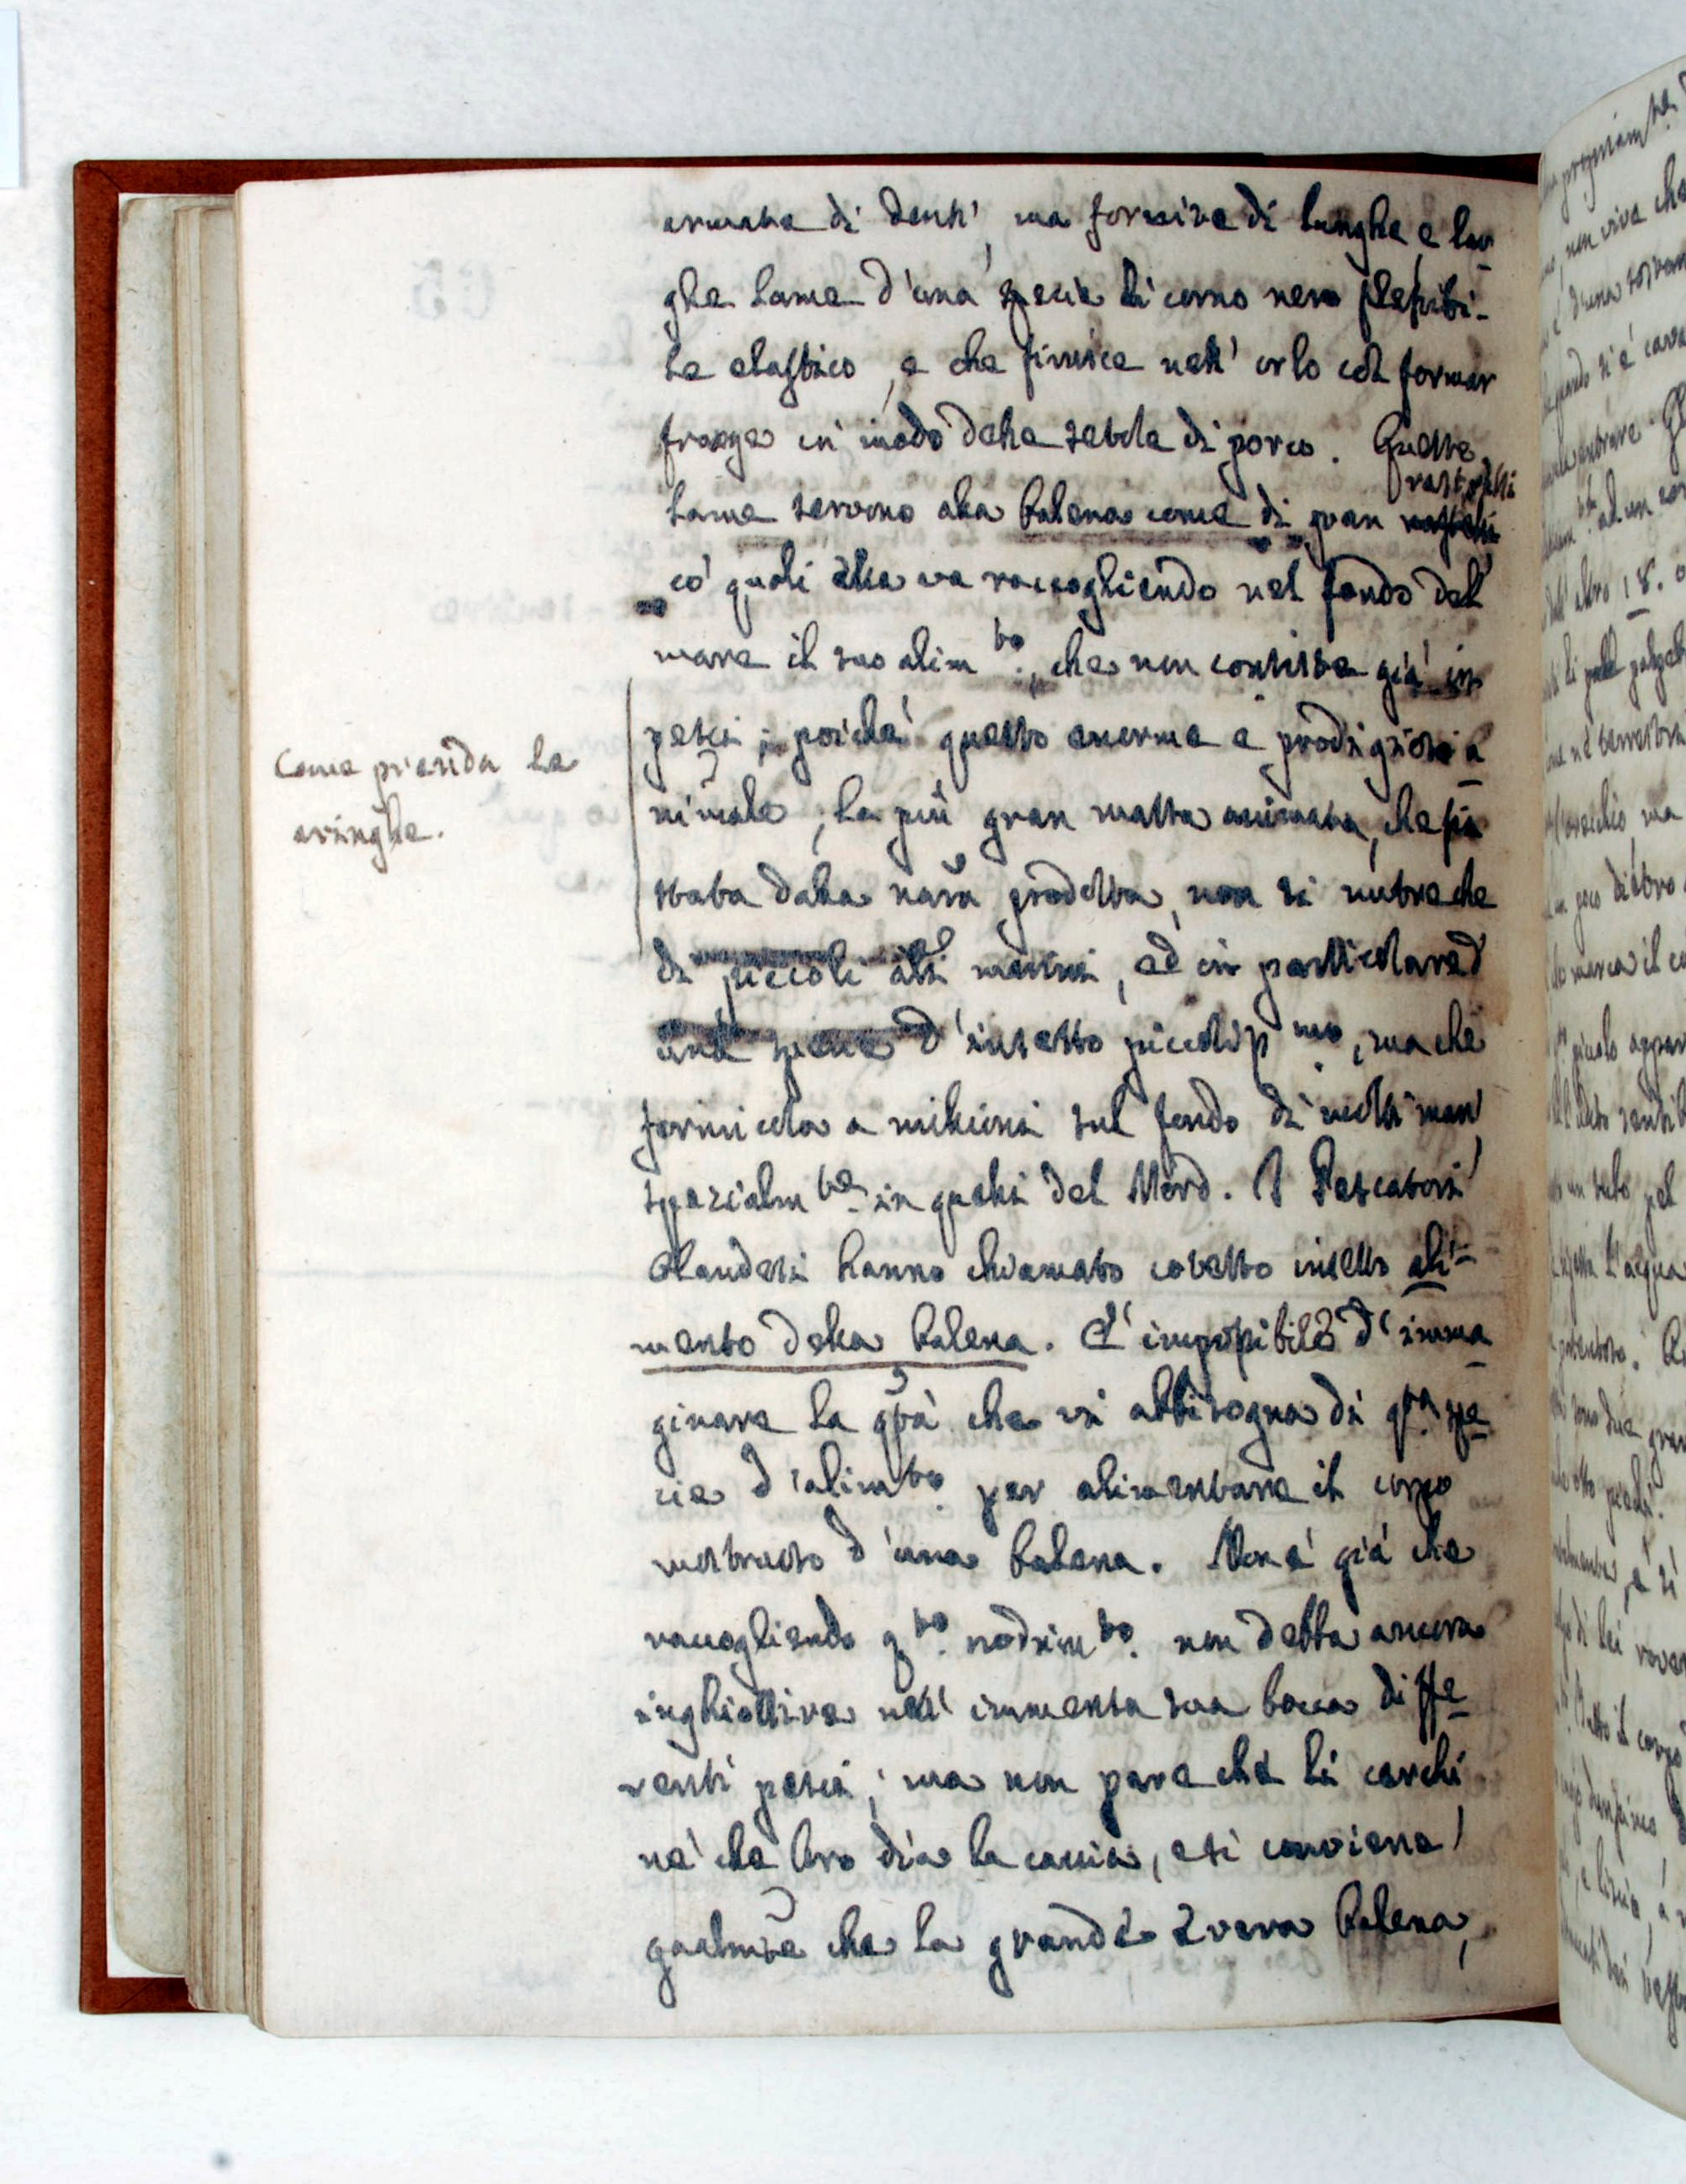 armata di denti, ma fornita di lunghe, e lar-
ghe lame d'una specie di corno nero flessibi-
le elastico, e che finisce nell' orlo col formar
frange in modo delle setole di porco. Queste
rastrelli
lame servono alla balena come di gran
co' quali ella va raccogliendo nel fondo del
mare il suo alim.to, che non consiste già in
pesci; poiché questo enorme e prodigioso a-
nimale, la più gran massa animata, che sia
stata dalla nãra prodotta, non si nutre che
di piccoli marini, ed in particolare d'
una specie d'insetto piccoliss.mo, ma che
formicola a milioni sul fondo di molti mari
spezialm.te in quelli del Nord. I Pescatori
Olandesi hanno chiamato cotesto insetto ali-
mento della balena. E' impossibile d'imma-
ginare la qtà che vi abbisogna di q.ta spe-
cie d'alim.to per alimentare il corpo
mostruoso d'una balena. Non è già che
raccogliendo q.to nodrim.to non debba ancora
inghiottire nell' immensa sua bocca diffe-
renti pesci; ma non pare che li cerchi
né che loro dia la caccia, e si conviene
gñalmte che la grande e vera balena,
Come prenda le
aringhe.